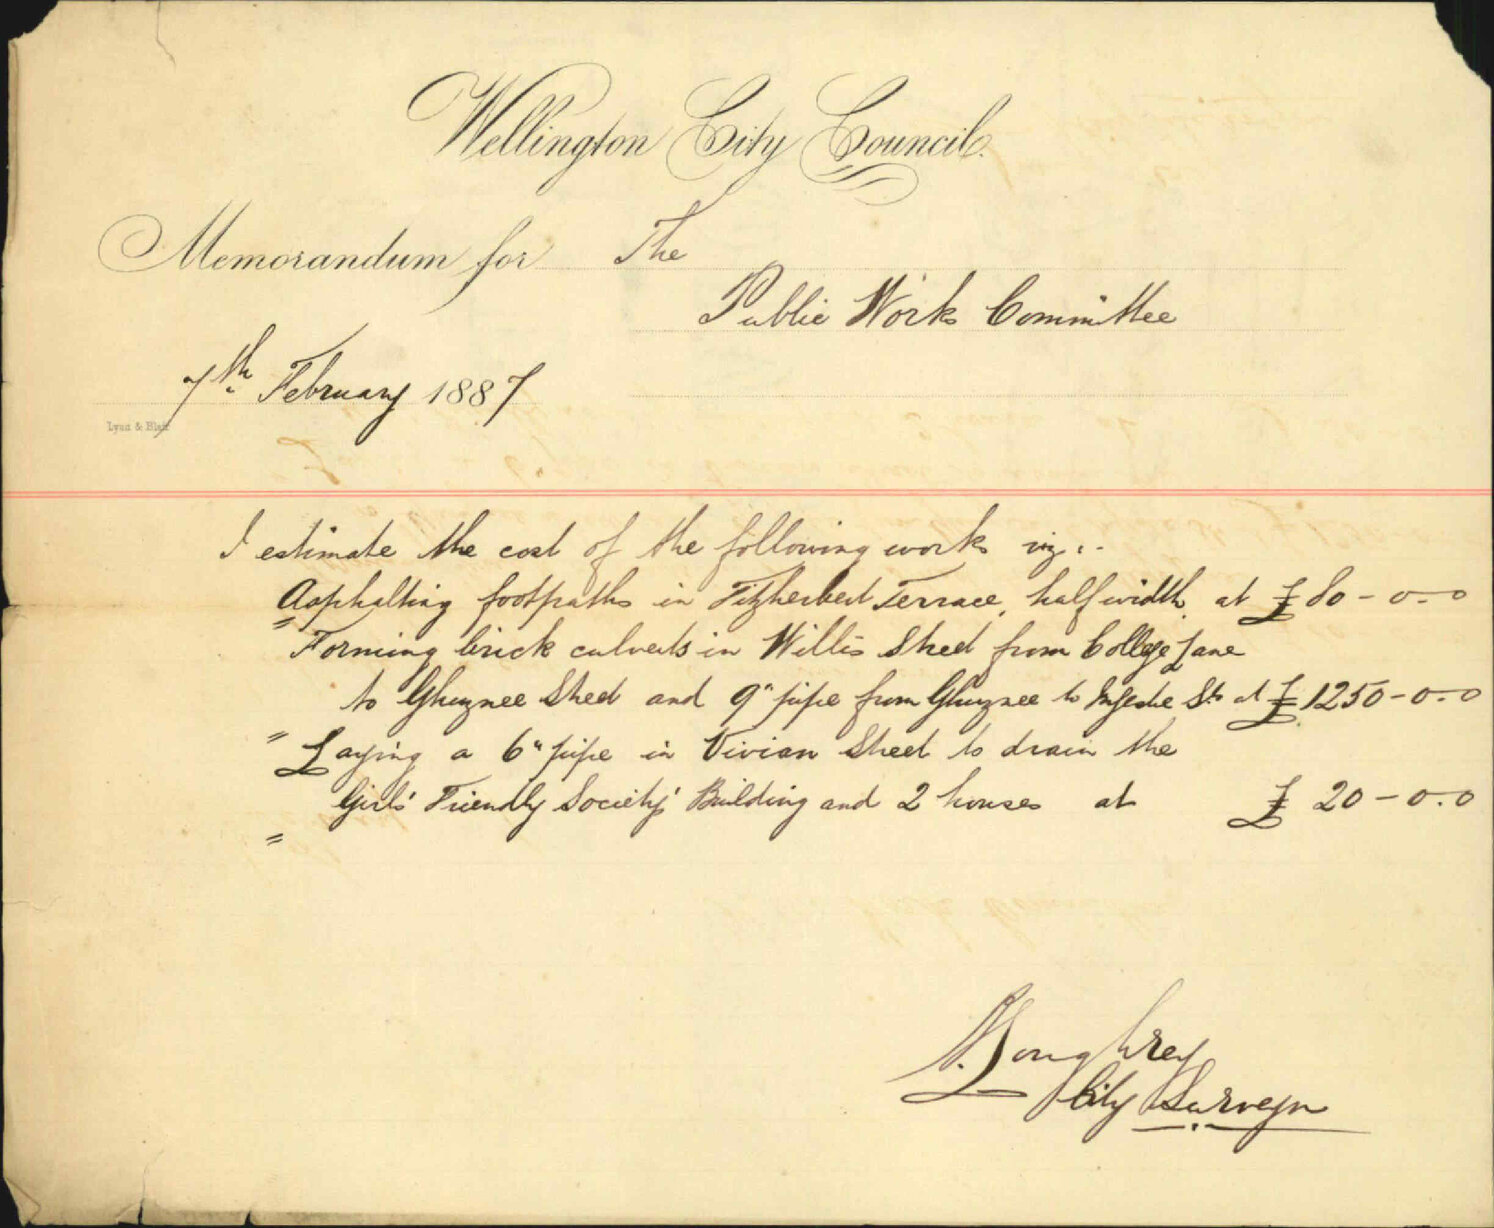 Wellington City Council.
Memorandum for The
Public Works Committee
7th February 1887
Lyon & Blair
I estimate the cost of the following works viz:-
Asphalting footpaths in Fitzherbert Terrace, half width at £ 80-0-0
" Forming brick culverts in Willis Street from College Lane
to Ghuznee Street and 9" pipe from Ghuznee to Ingestre Sts at £ 1250-0-0
" Laying a 6" pipe in Vivian Street to drain the
Girls' Friendly Society's Building and 2 houses at £ 20-0-0
"
Loughrey
City Surveyor